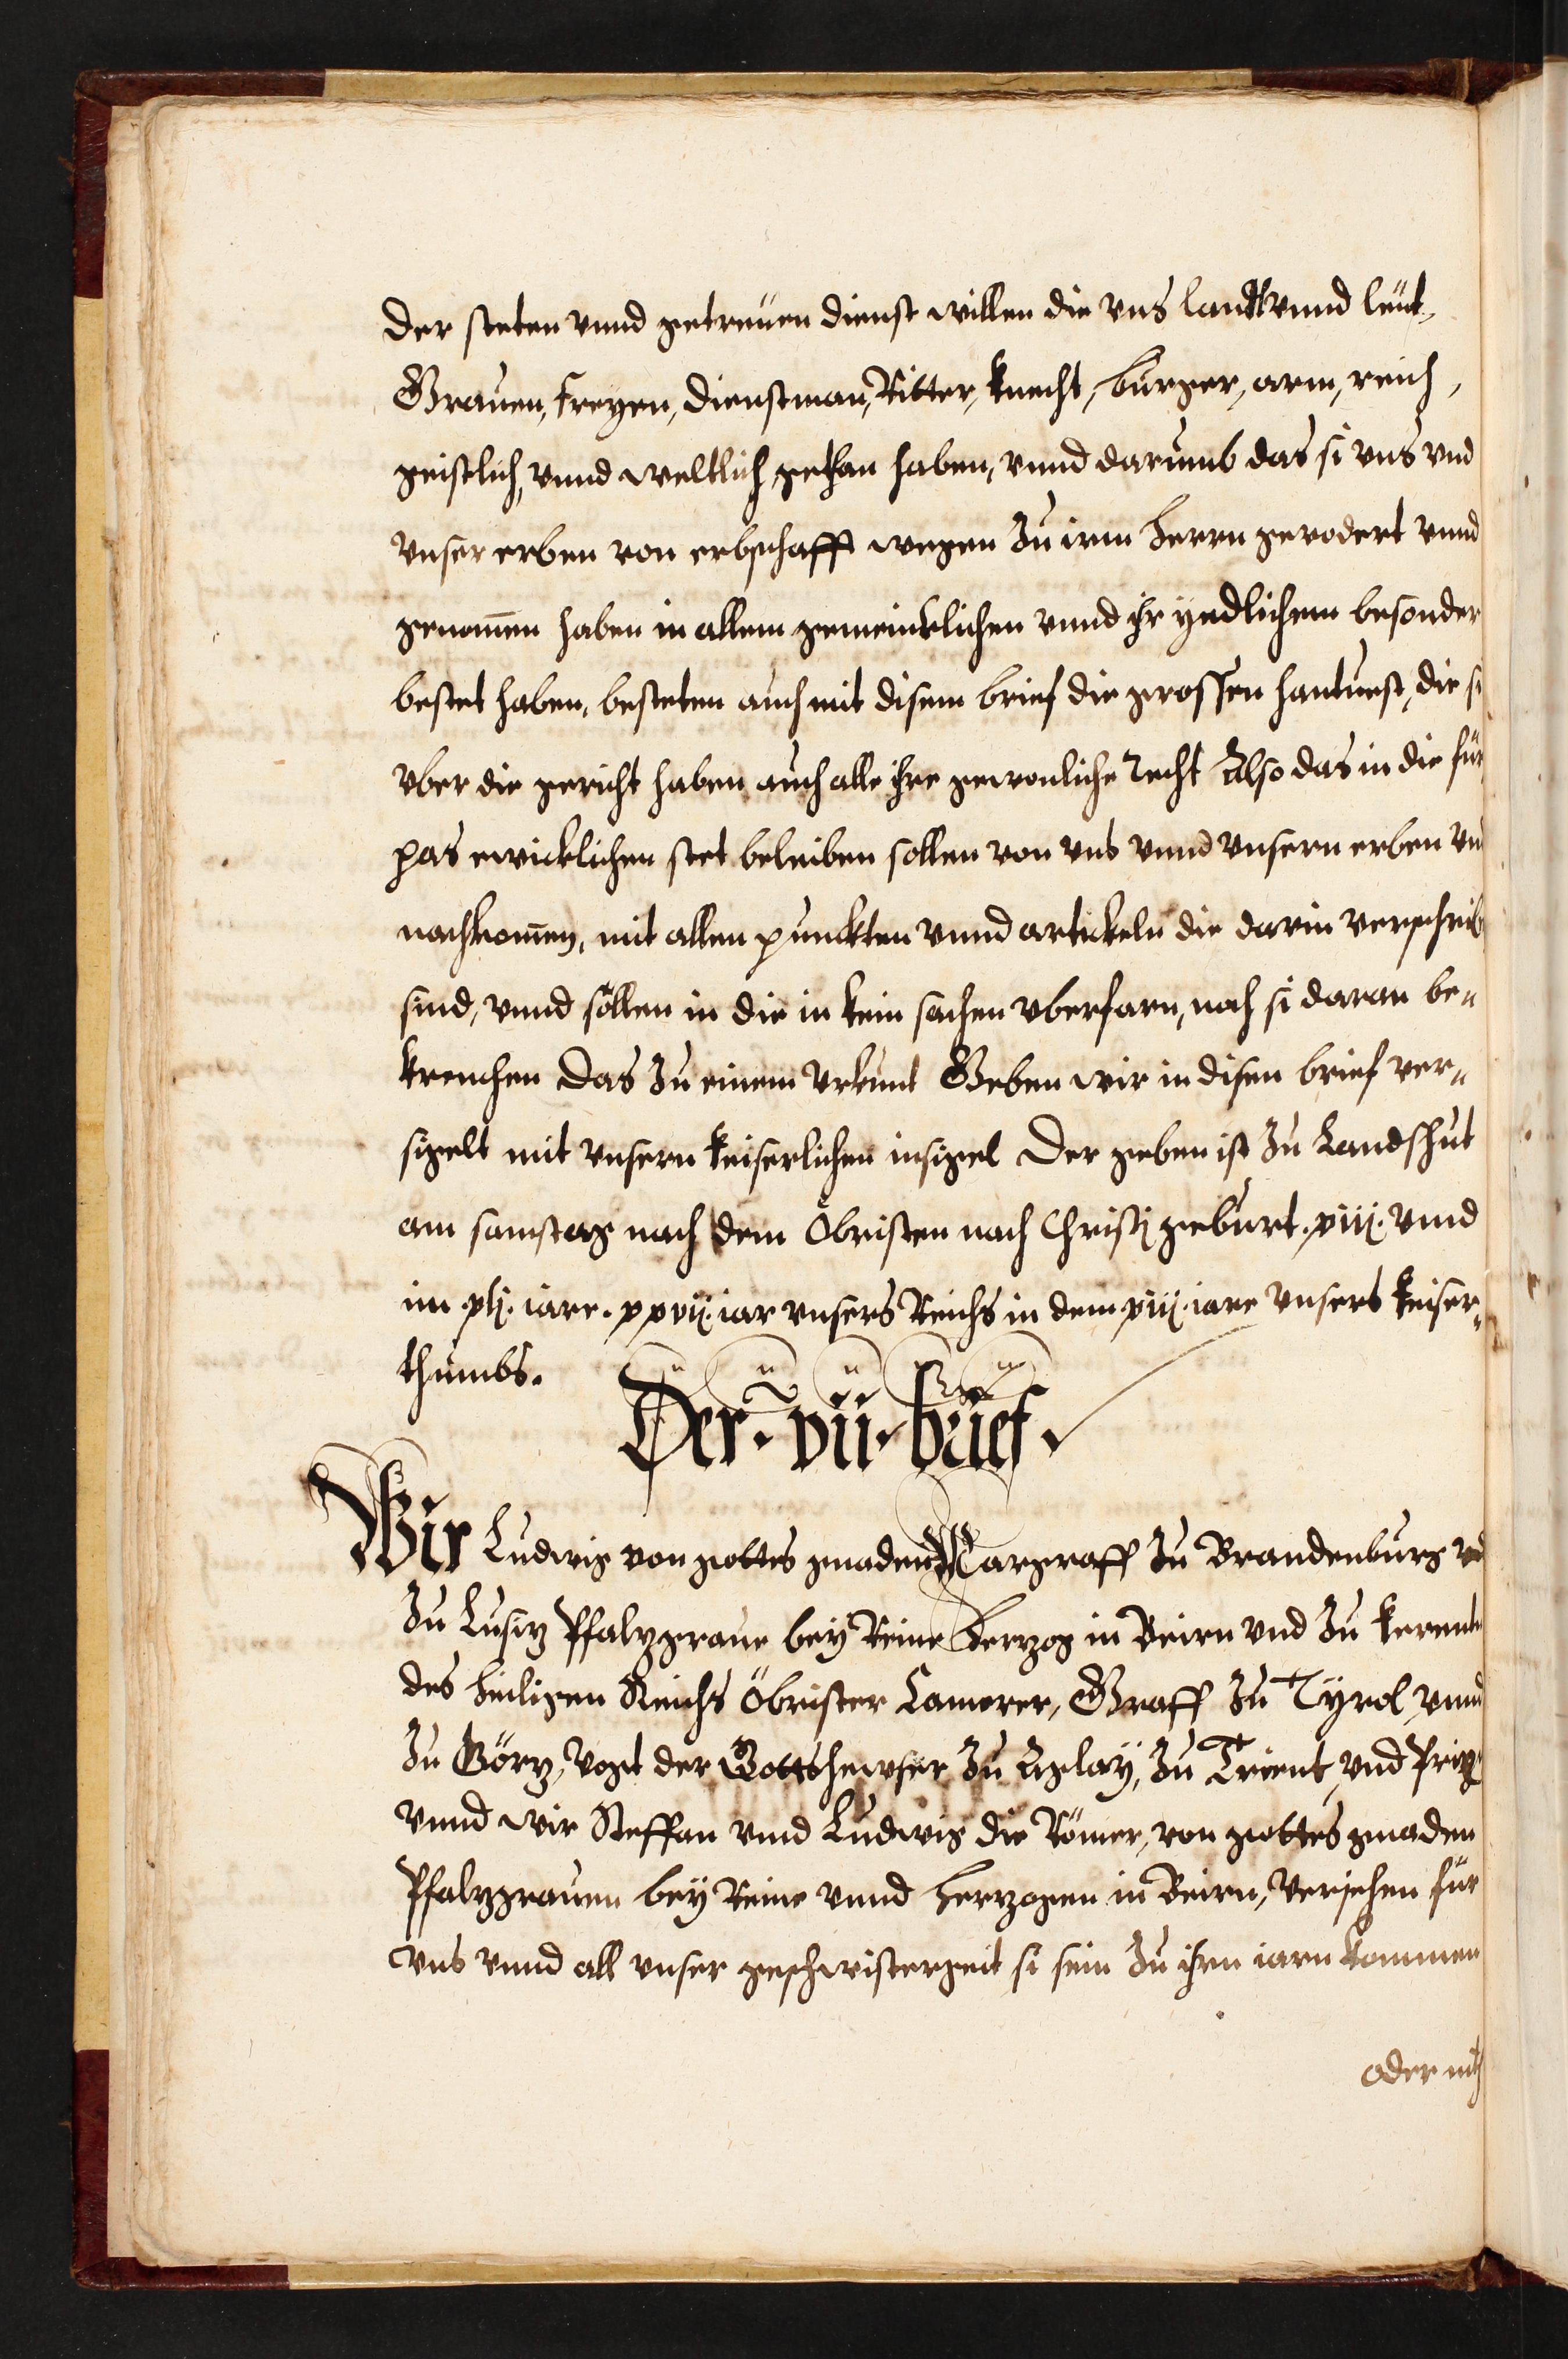 der steten vnnd getreüen dienst willen die vns landt vnnd leüt,
Grauen, freyen, dienstman, Ritter, knecht, burger, arm, reich,
geistlich, vnnd weltlich gethan haben, vnnd darumb das si vns vnd
vnser erben von erbschafft wegen zu irm herrn gevodert vnnd
genom̄en haben in allem gemeincklichen vnnd ihr yedlichem besonder
bestet haben, besteten auch mit disem brief die grossen hantuest, die si
vber die gericht haben auch alle ihre gewonliche recht Also das in die für
pas ewicklichen stet beleiben sollen von vns vnnd vnsern erben vn
nachkom̄en, mit allen punckten vnnd artickeln die darin verschrib
sind, vnnd söllen in die in kein sachen vberfarn, noch si daran be„
krencken Das zu einem vrkunt Geben wir in disen brief ver„
sigelt mit vnsern keiserlichen insigel Der geben ist zu Landshut
am samstag nach dem Obristen nach Christi geburt. xiij. vnnd
im .xlj. iare. xxvij. iar vnsers Reichs in dem xiij. iare vnsers keiser„
thumbs.
Der. vii. brief.
Wir Ludwig von gottes gnaden Margraff zu Brandenburg vnd
zu Lusiz Pfalzgraue bey Reine Herzog in Beirn vnd zu kernnte
des heiligen Reichs Öbrister Camerer, Graff zu Tyrol, vnnd
zu Görz, Vogt der Gottshewser zu Aglay, zu Trient, vnd Prix
vnnd wir Steffan vnnd Ludwig die Römer, von gottes gnaden
Pfalzgrauen bey Reine vnnd herzogen in Beirn, Veriehen für
vns vnnd all vnser geschwistergeit si sein zu ihrn iarn kommen
oder nit